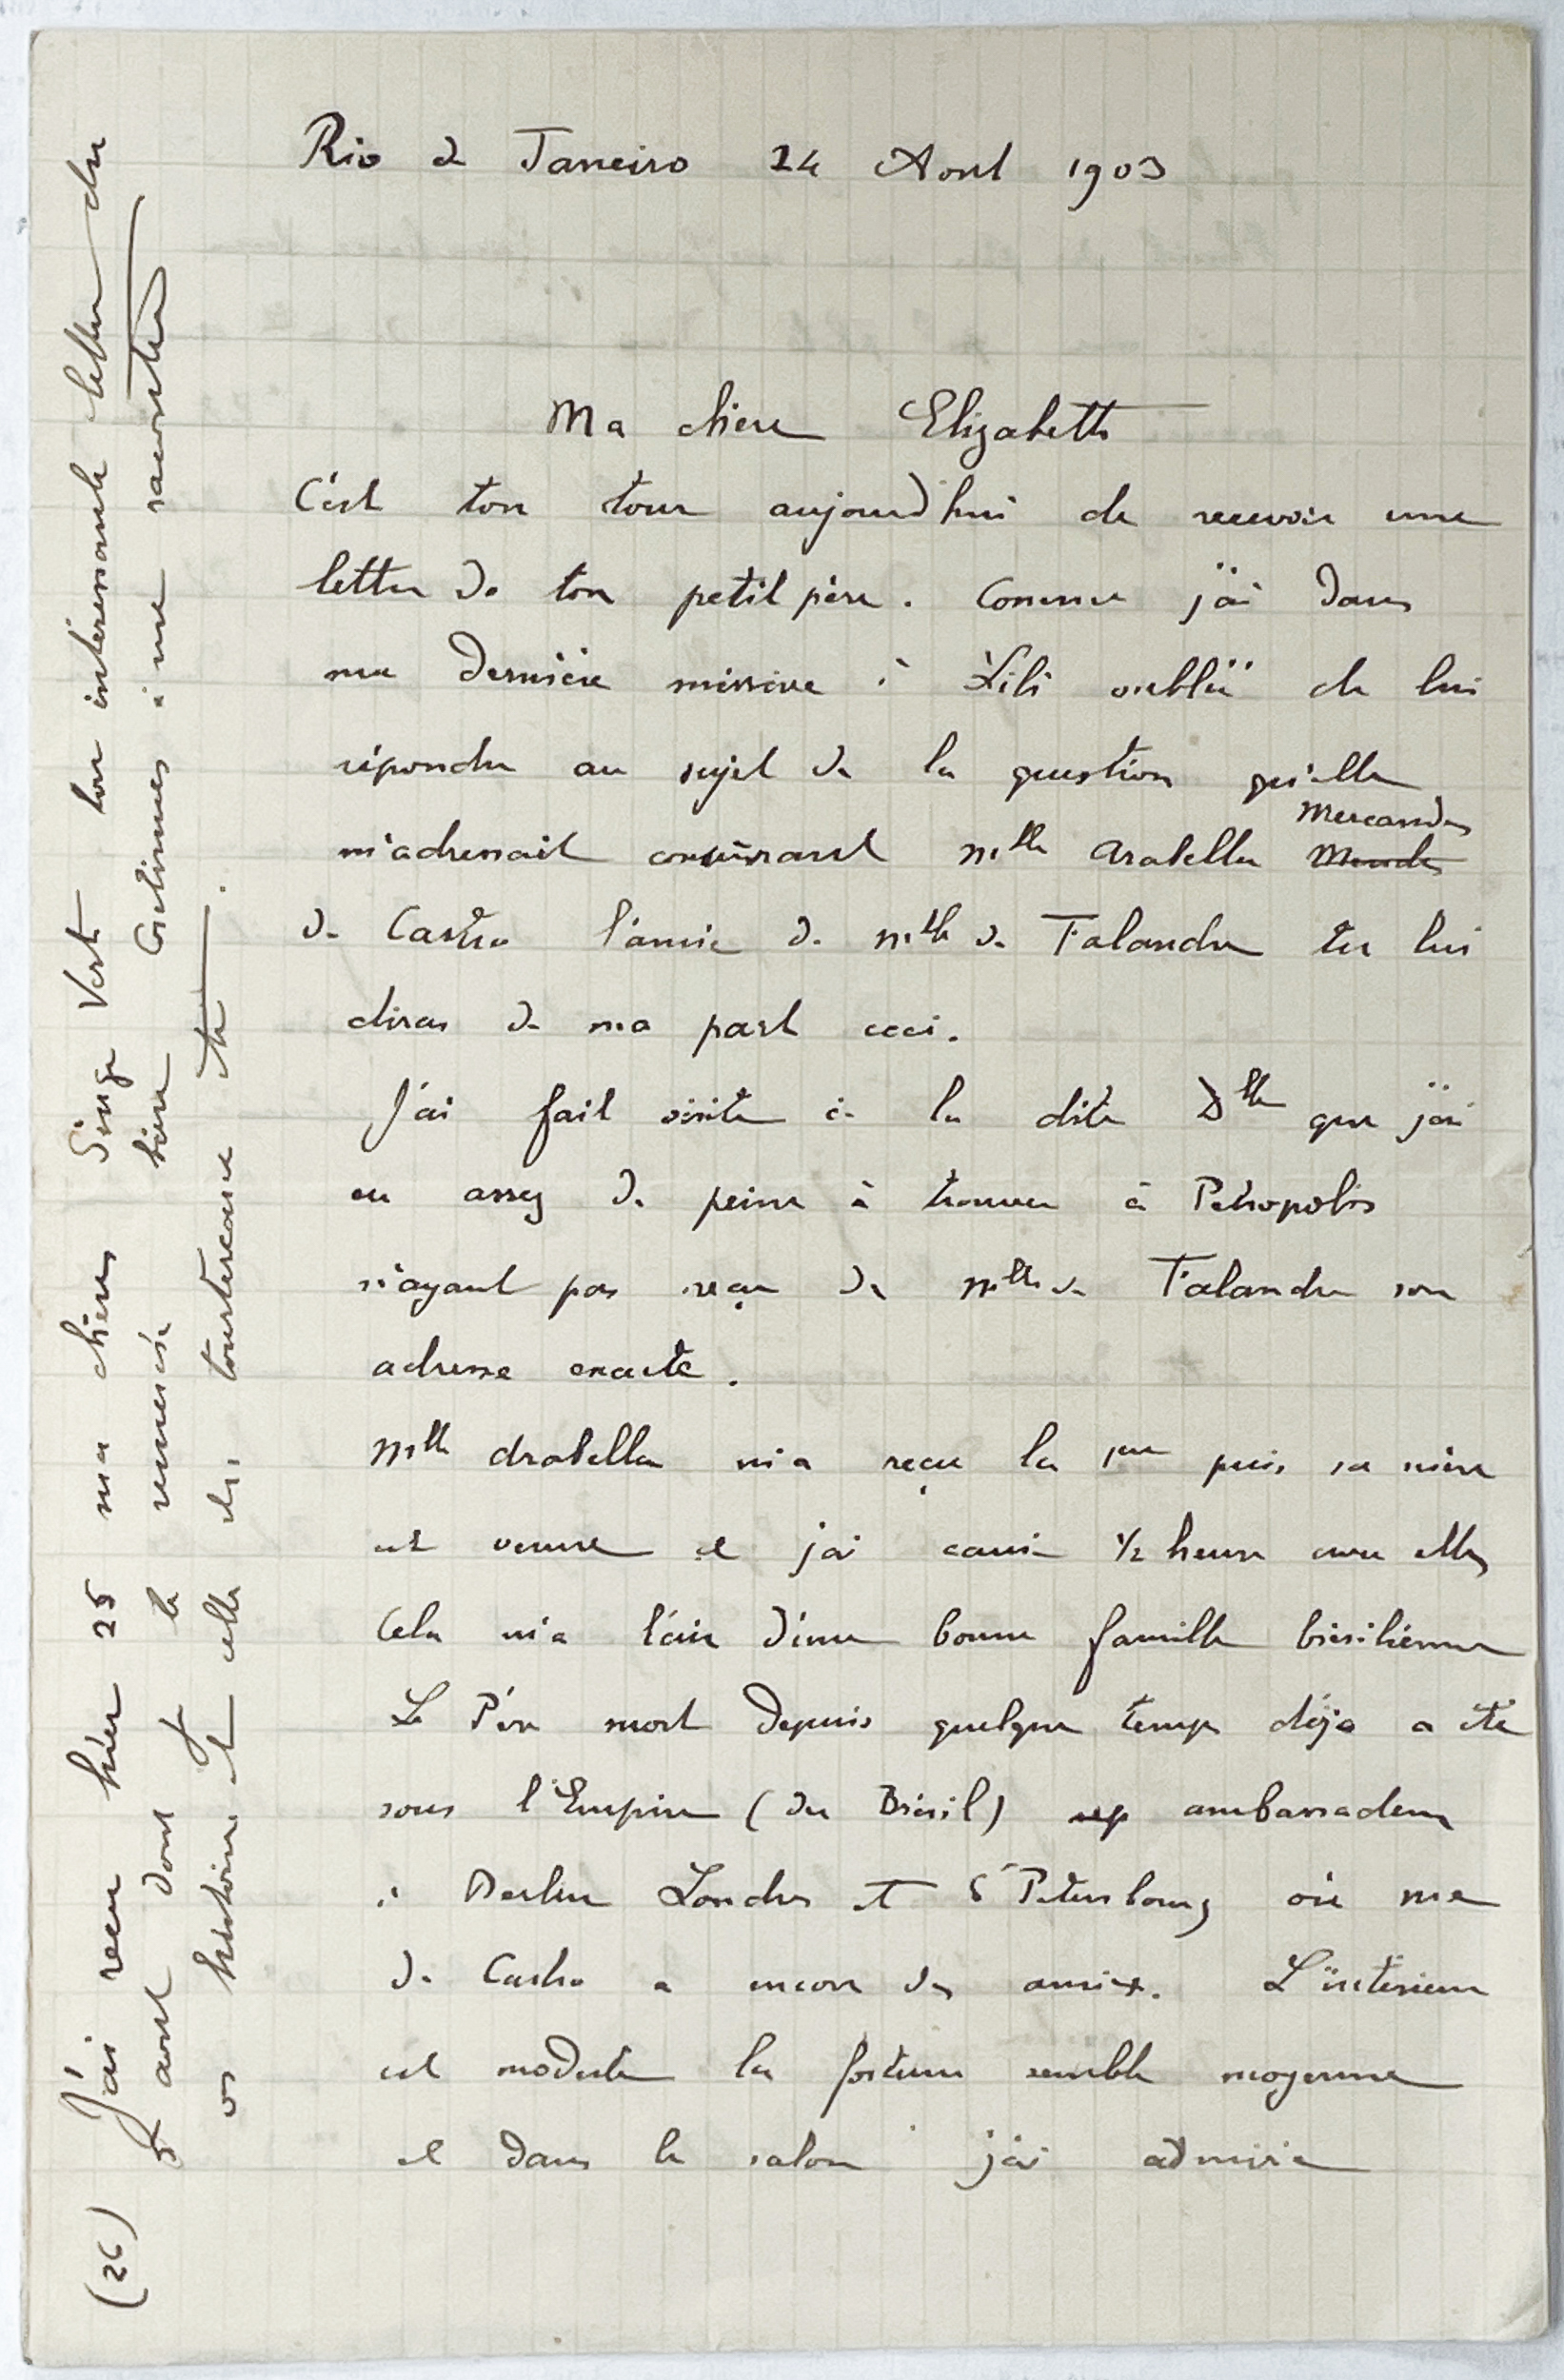 Rio de Janeiro 24 Aout 1903
Ma chère Elizabeth
C'est ton tour aujourd'hui de recevoir une
lettre de ton petit père. Comme j'ai dans
ma dernière missive à Lili oublié de lui
répondre au sujet de la question qu'elle
m'adressait concernant Mlle Arabella
de Castro l'amie de Mlle de Talandre tu lui
diras de ma part ceci.
J'ai fait visite à la dite Dlle que j'ai
eu assez de peine à trouver à Petropolis
n'ayant pas reçu de Mlle de Talandre son
adresse exacte.
Mlle Arabella m'a reçu la 1ere puis sa mère
est venue et j'ai causé 1/2 heure avec elles
Cela m'a l'air d'une bonne famille brésilienne
Le Père mort depuis quelque temps déja a été
sous l'Empire (du Brésil) ambassadeur
à Berlin Londres et St Petersbourg où me
de Castro a encore des amies. L'intérieur
est modeste la fortune semble moyenne
et dans le salon j'ai admiré
(26) J'ai reçu hier 25 ma chère Singe Vert ton intéressante lettre du
5 aout dont je te remercie bien Continues à me raconter
vos histoires et celles des